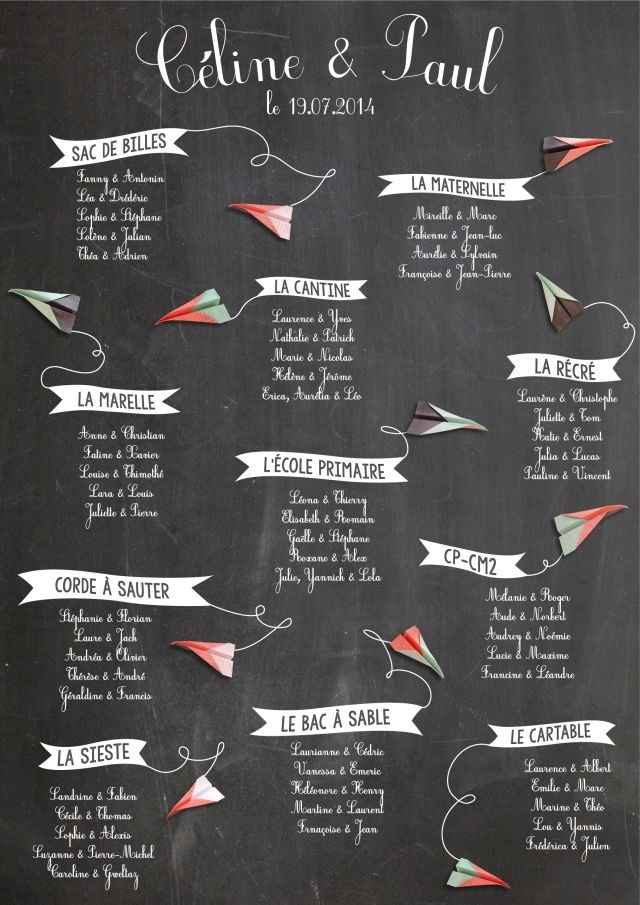 Céline & Paul
le 19.07.2014
SAC DE BILLES
Fanny & Antonin
Léa & Drédéric
Sophie & Stéphane
Solène & Julian
Théa & Adrien
LA MATERNELLE
Mireille & Marc
Fabienne & Jean-luc
Aurélie & Sylvain
Françoise & Jean-Pierre
LA CANTINE
Laurence & Yves
Nathalie & Patrick
Marie & Nicolas
Hélène & Jérôme
Erica, Aurélia & Léo
LA RÉCRÉ
Laurène & Christophe
Juliette & Tom
Katie & Ernest
Julia & Lucas
Pauline & Vincent
LA MARELLE
Anne & Christian
Fatine & Xavier
Louise & Thimothé
Lara & Louis
Juliette & Pierre
L'ÉCOLE PRIMAIRE
Léona & Thierry
Elisabeth & Romain
Gaëlle & Stéphane
Roxane & Alex
Julie, Yannick & Lola
CP-CM2
Mélanie & Roger
Aude & Norbert
Audrey & Noémie
Lucie & Maxime
Francine & Léandre
CORDE À SAUTER
Stéphanie & Florian
Laure & Jack
Andréa & Olivier
Thérèse & André
Géraldine & Francis
LE BAC À SABLE
Laurianne & Cédric
Vanessa & Emeric
Héléonore & Henry
Martine & Laurent
Frnaçoise & Jean
LE CARTABLE
Laurence & Albert
Emilie & Marc
Marine & Théo
Lou & Yannis
Frédérica & Julien
LA SIESTE
Sandrine & Fabien
Cécile & Thomas
Sophie & Alexis
Suzanne & Pierre-Michel
Caroline & Gweltaz